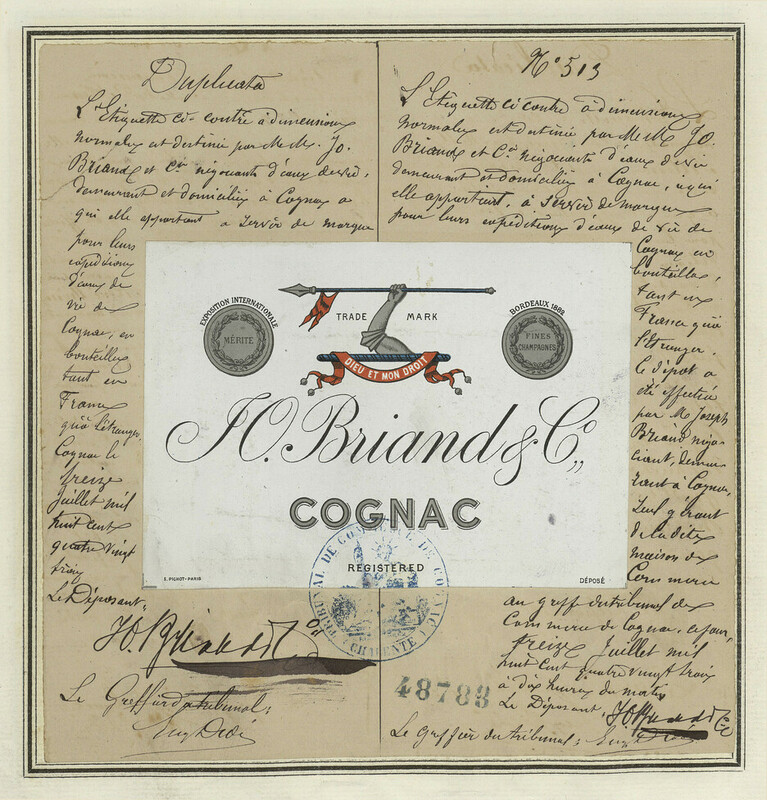 Duplicata
L'Etiquette ci-contre à dimensions
normales est destinée par M.M. Jo.
Briand et Cie négociants d'eaux de vie,
demeurant et domiciliés à Cognac à
qui elle appartient à servir de marque
pour leurs
expéditions
d'eaux de
vie de
Cognac, en
bouteilles
tant en
France
qu'à l'étranger.
Cognac le
treize
Juillet mil
huit cent
quatre vingt
trois
Le Déposant,
Jo. Briand & Co
Le Greffier du tribunal:
N° 513
L'Etiquette ci contre à dimensions
normales est destinée par M.M. Jo.
Briand et Co négociants d'eaux de vie
demeurant et domiciliés à Cognac, à qui
elle appartient, à servir de marque
pour leurs expéditions d'eaux de vie de
Cognac en
bouteilles,
tant en
France qu'à
l'étranger.
Le dépôt a
été effectué
par M. Joseph
Briand négo-
ciant, demeu-
rant à Cognac,
seul gérant
de la dite
maison de
Commerce
au greffe du tribunal de
Commerce de Cognac, ce jour,
treize Juillet mil
huit cent quatre vingt trois
à dix heures du matin
Le Déposant, Jo Briand & Co
Le Greffier du tribunal:
EXPOSITION INTERNATIONALE
MÉRITE
TRADE MARK
BORDEAUX 1882
FINES
CHAMPAGNES
DIEU ET MON DROIT
JO. Briand & Co,,
COGNAC
REGISTERED
E. PICHOT-PARIS
DÉPOSÉ
TRIBUNAL DE COMMERCE DE COGNAC
CHARENTE
48788